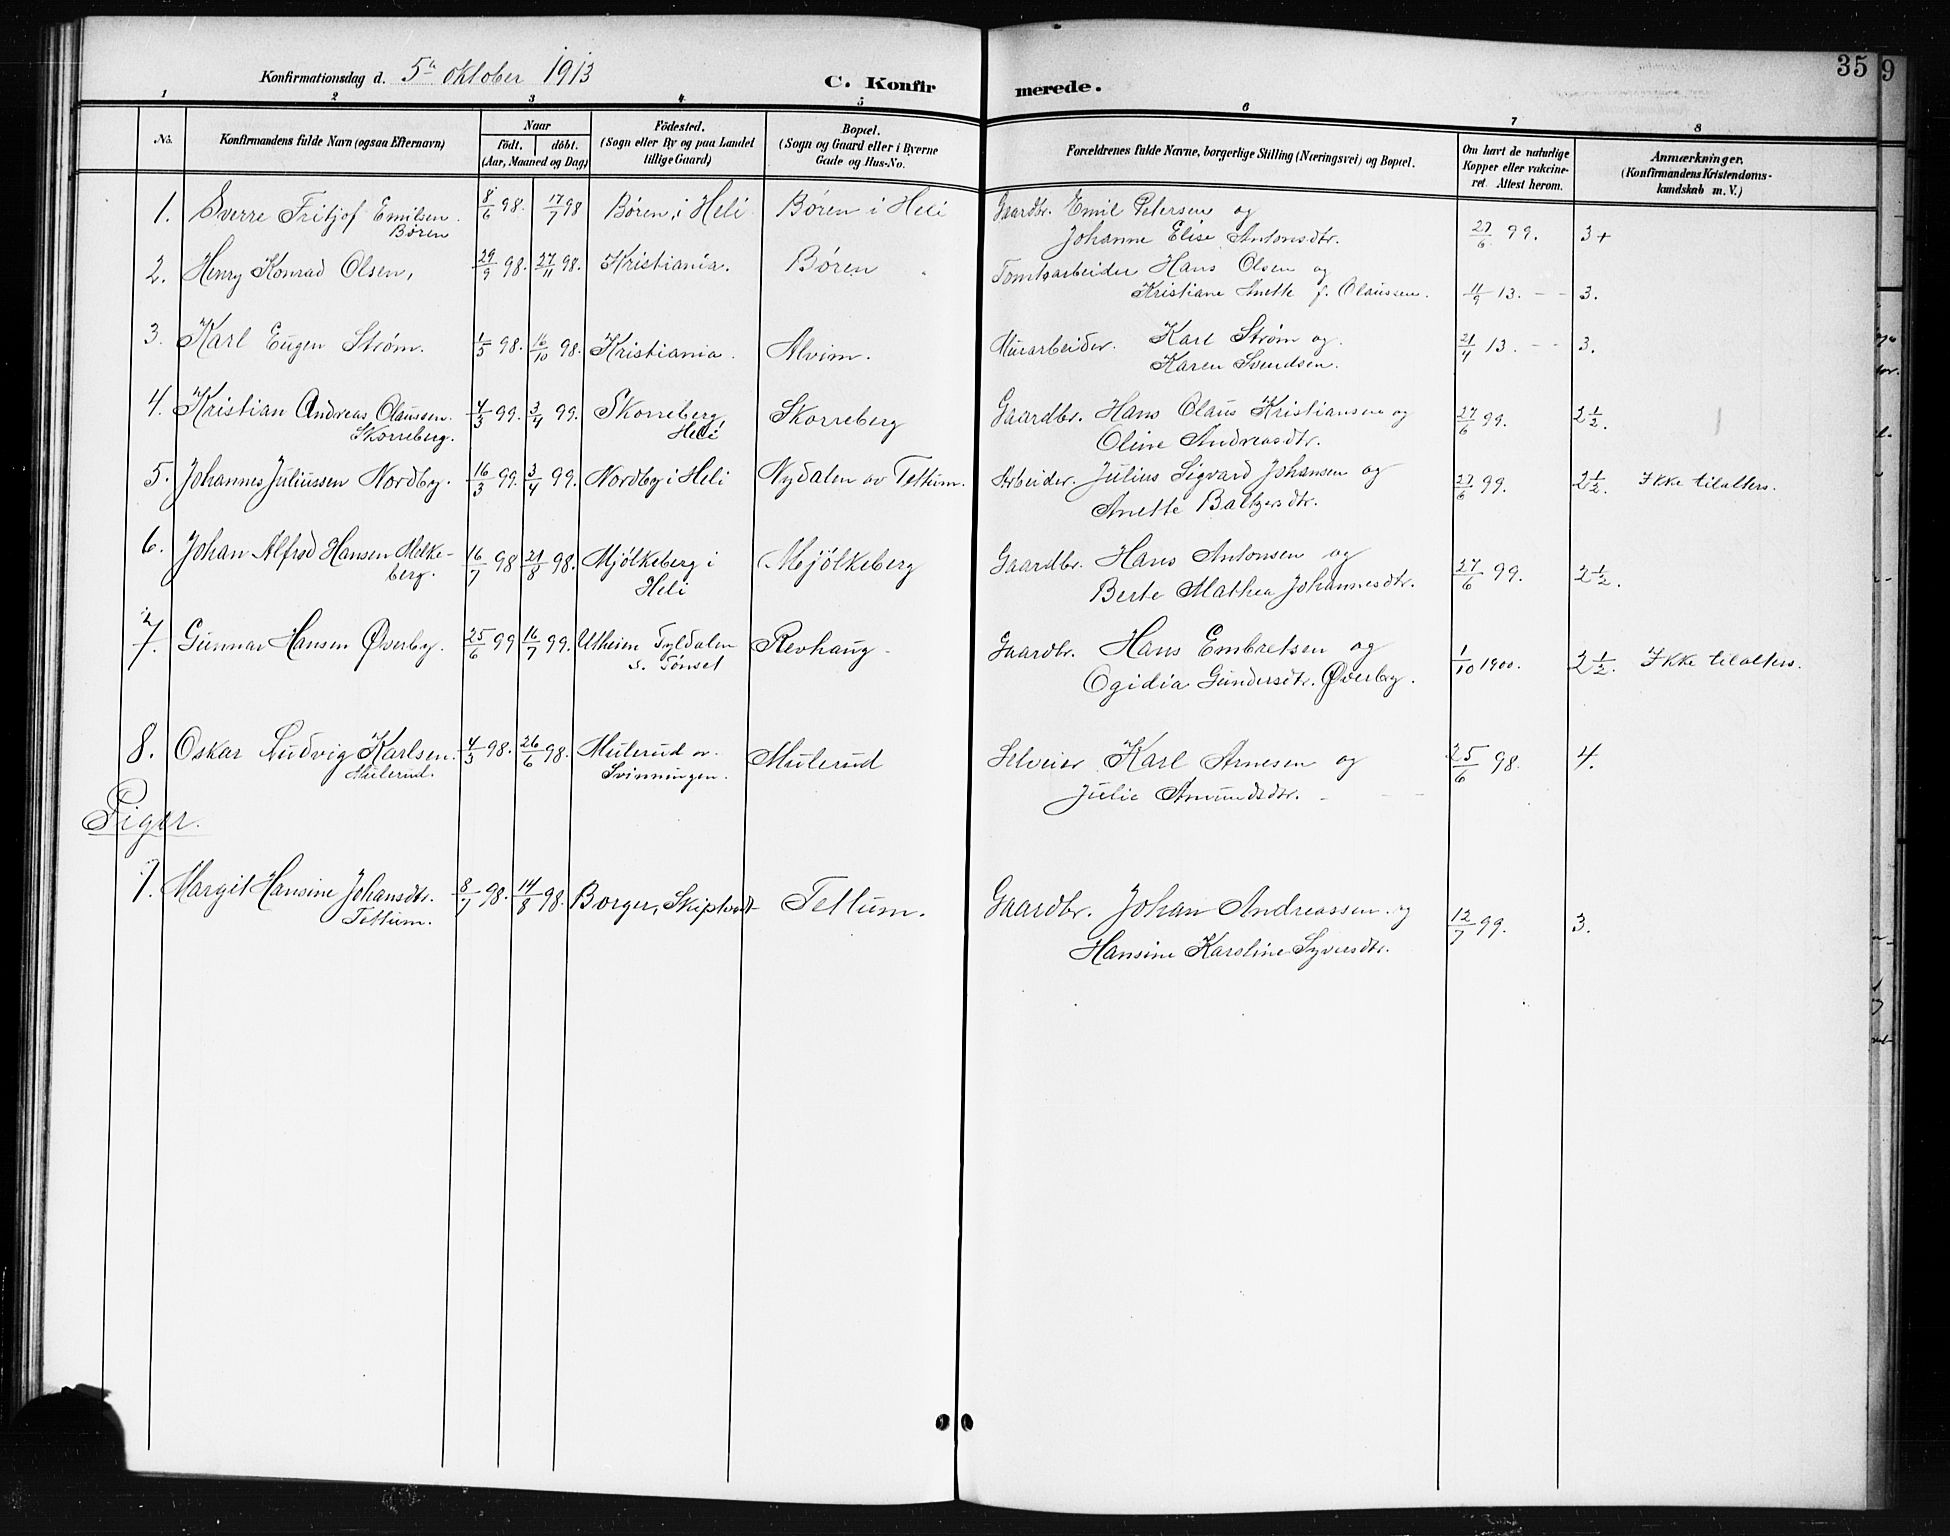 35
9
Konfirmationsdag d. 5te oktober 1913
C. Konfirmerede.
1 2 3 4 5 6 7 8
No.
Konfirmandens fulde Navn (ogsaa Efternavn)
Naar
födt. döbt.
(Aar, Maaned og Dag)
Födested.
(Sogn eller By og paa Landet
tillige Gaard)
Bopæl.
(Sogn og Gaard eller i Byerne
Gade og Hus-No.
Forældrenes fulde Navne, borgerlige Stilling (Næringsvei) og Bopæl.
Om havt de naturlige
Kopper eller vakcine-
ret Attest herom.
Anmærkninger.
(Konfirmandens Kristendoms-
kundskab m. V.)
1. Sverre Fritjof Emilsen 8/6 98. 17/7 98 Børen i Heli Børen i Heli Gaardbr. Emil Petersen og
Børen Johanne Elise Antonsdtr. 27/6 99. 3+
2. Henry Konrad Olsen, 29/9 98. 27/11 98. Kristiania. Børen Tomtearbeider Hans Olsen og
Kristiane Anette f. Olaussen. 11/9 13. - - 3.
3. Karl Eugen Strøm. 1/5 98. 16/10 98. Kristiania. Alvim. Murarbeider. Karl Strøm og 21/4 13. - - 3.
Karen Svendsen.
4. Kristian Andreas Olaussen. 4/3 99. 3/4 99. Skorreberg Skorreberg Gaardbr. Hans Olaus Kristiansen og 27/6 99. 2 1/2.
Skorreberg. Heli Oline Andreasdtr.
5. Johannes Juliussen Nordby. 16/3 99. 3/4 99. Nordby i Heli Nydalen av Tettum. Arbeider. Julius Sigvard Johansen og 27/6 99. 2 1/2. Ikke tilalters.
Anette Baltzersdtr.
6. Johan Alfred Hansen Melke- 16/7 98 21/8 98. Mjölkeberg i Mejölkeberg Gaardbr. Hans Antonsen og 27/6 99. 2 1/2.
berg. Heli Berte Mathea Johannesdtr.
7. Gunnar Hansen Øverby. 25/6 99 16/7 99. Utheien Tyldalen Revhaug. Gaardbr. Hans Embretsen og 1/10 1900. 2 1/2. Ikke tilalters.
s. Tønset Ogidia Gundersdtr. Øverby.
8. Oskar Ludvig Karlsen. 4/3 98. 26/6 98. Mulerud av. Mulerud Selveier Karl Arnesen og 25/6 98. 4.
Mulerud. Svinningen. Julie Amundsdtr.
Piger.
1. Margit Hansine Johansdtr. 8/7 98. 14/8 98. Borger, Skiptvedt Tettum. Gaardbr. Johan Andreassen og 12/7 99. 3.
Tettum. Hansine Karoline Syversdtr.